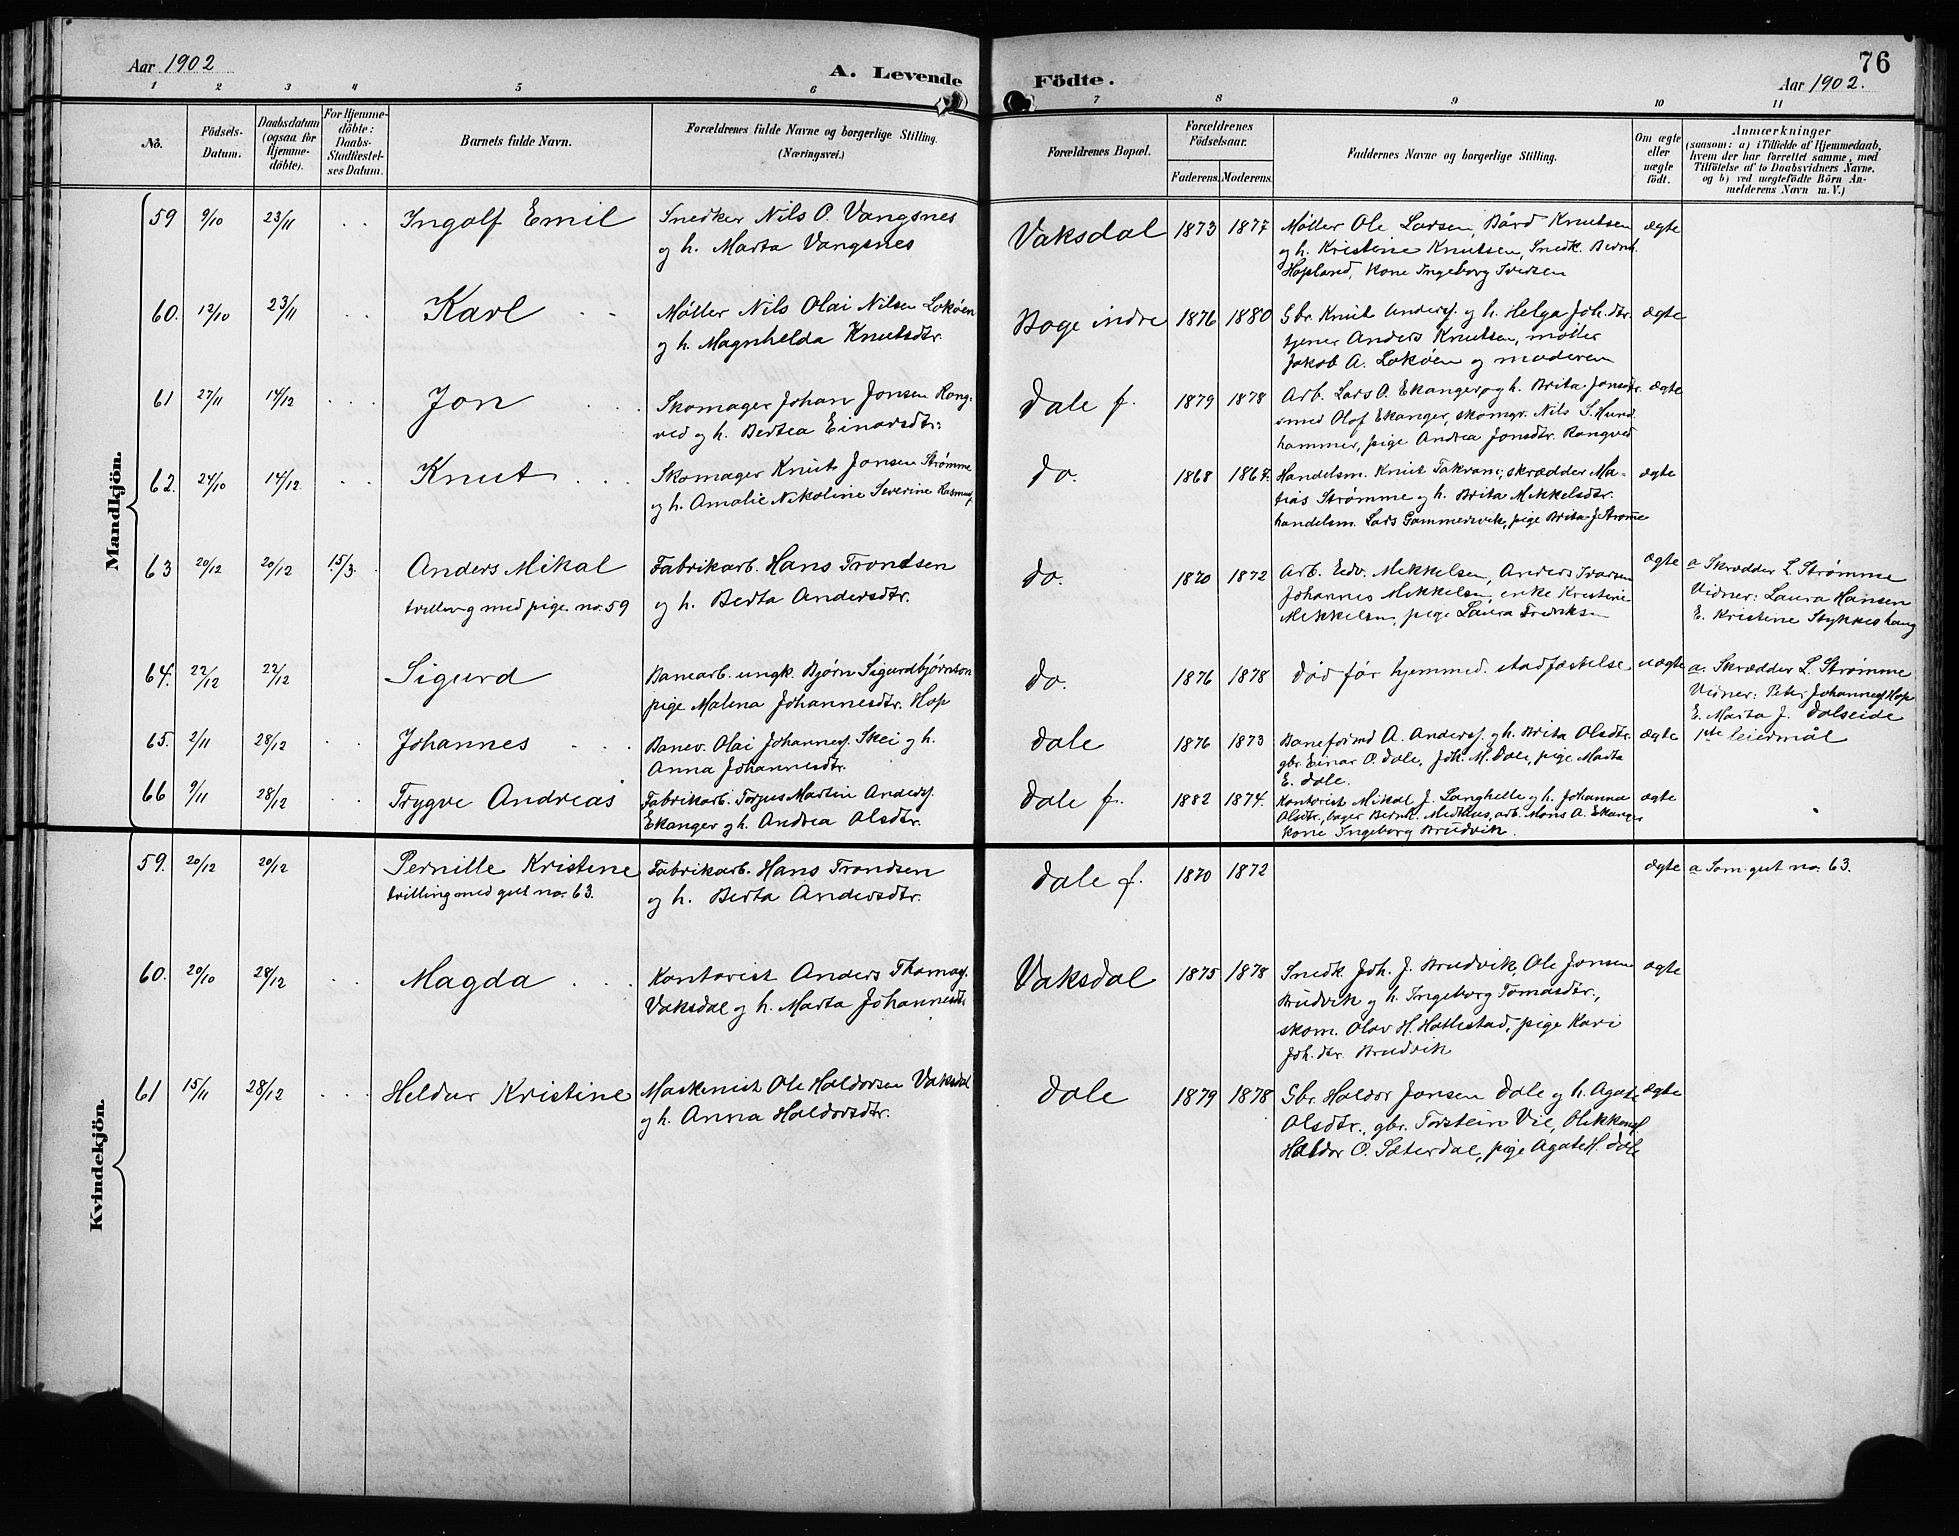 Aar 1902
A. Levende
Födte.
76
Aar 1902.
1 2 3 4 5 6 7 8 9 10 11
No.
Födsels-
Datum.
Daabsdatum
(ogsaa for
Hjemme-
döbte).
For Hjemme-
döbte:
Daabs-
Stadfæstel-
ses Datum.
Barnets fulde Navn.
Forældrenes fulde Navne og borgerlige Stilling.
(Næringsvei.)
Forældrenes Bopæl.
Forældrenes
Födselsaar.
Faderens. Moderens.
Faddernes Navne og borgerlige Stilling.
Om ægte
eller
uægte
födt.
Anmærkninger
(saasom: a) i Tilfælde af Hjemmedaab,
hvem der har forrettet samme, med
Tilföielse af to Daabsvidners Navne.
og b) ved uægtefödte Börn An-
melderens Navn m. V.)
Mandkjön.
59 9/10 23/11 Ingolf Emil
Snedker Nils O. Vangsnes
og h. Marta Vangsnes
Vaksdal 1873 1877
Møller Ole Larsen, Bård Knutsen
og h. Kristine Knutsen, Snedk. Bernh.
Hopland, kone Ingeborg Iversen
ægte
60. 12/10 23/11 Karl
Møller Nils Olai Nilsen Lokøen
og h. Magnhelda Knutsdtr.
Boge indre 1876 1880
Gbr. Knut Anders. og h. Helga Joh.dtr.
tjener Anders Knutsen, møller
Jakob A. Lokøen og moderen
ægte
61 27/11 14/12 Jon
Skomager Johan Jonsen Rong-
ved og h. Bertea Einarsdtr.
Dale f. 1879 1878
Arb. Lars O. Ekanger, og h. Brita Jonsdtr.
smed Olof Ekanger, skomgr. Nils S. Hund
hammer, pige Andrea Jonsdtr. Rongved
ægte
62. 24/10 14/12 Knut
Skomager Knut Jonsen Strømme
og h. Amalie Nikoline Severine Rasmus.
do. 1868 1867.
Handelsm. Knut Takvam; skrædder Ma-
tias Strømme og h. Brita Mikkelsdtr.
handelsm. Lars Gammersvik, pige Brita J. Strømme
ægte
63 20/12 20/12 15/3. Anders Mikal
tvilling med pige no. 59
Fabrikarb. Hans Trondsen
og h. Berta Andersdtr.
do. 1870 1872
Arb. Edv. Mikkelsen, Anders Ivarsen
Johannes Mikkelsen, enke Kristine
Mikkelsen, pige Laura Fredriksen
ægte
a Skrædder L. Strømme
Vidner: Laura Hansen
E. Kristine Stykkeshaug
64. 22/12 22/12 Sigurd
Banearb. ungk. Bjørn Sigurdbjørnson
pige Malena Johannesdtr. Hop
do. 1876 1878
Død før hjemmed. stadfæstelse
uægte
a. Skrædder L. Strømme
Vidner: Peter Johannes Hop
E. Marta J. Dalseide
1ste leiermål
65. 2/11 28/12 Johannes
Banev. Olai Johannes. Skei og h.
Anna Johannesdtr.
Dale 1876 1873
Baneformd A. Anders. og h. Brita Olsdtr.
gbr. Einar O. Dale, Joh. M. Dale, pige Marta
E. Dale.
ægte
66 9/11 28/12 Trygve Andreas
Fabrikarb. Torjus Martin Anders.
Ekanger og h. Andrea Olsdtr.
Dale f. 1882 1874.
Kontorist Mikal J. Langhelle og h. Johanna
Olsdtr., bager Bernh. Midthus, arb. Mons A. Ekanger
kone Ingeborg Brudvik.
ægte
Kvindekjön.
59. 20/12 20/12 Pernille Kristine
tvilling med gut no. 63.
Fabrikarb. Hans Trondsen
og h. Berta Andersdtr.
Dale f. 1870 1872
ægte a Som gut no. 63.
60. 20/10 28/12 Magda
Kontorist Anders Thomas.
Vaksdal og h. Marta Johannesdtr.
Vaksdal 1875 1878
Snedk. Joh. J. Brudvik, Ole Jonsen
Brudvik og h. Ingeborg Tomasdtr.,
skom. Olav H. Hatlestad, pige Kari
Joh.dtr. Brudvik
ægte
61 15/11 28/12 Heldur Kristine
Maskinist Ole Haldorsen Vaksdal
og h. Anna Haldorsdtr.
Dale 1879 1878
Gbr. Haldor Jonsen Dale og h. Agate
Olsdtr., gbr. Torstein Vie,
Haldor O. Sæterdal, pige Agate H. Dale
ægte